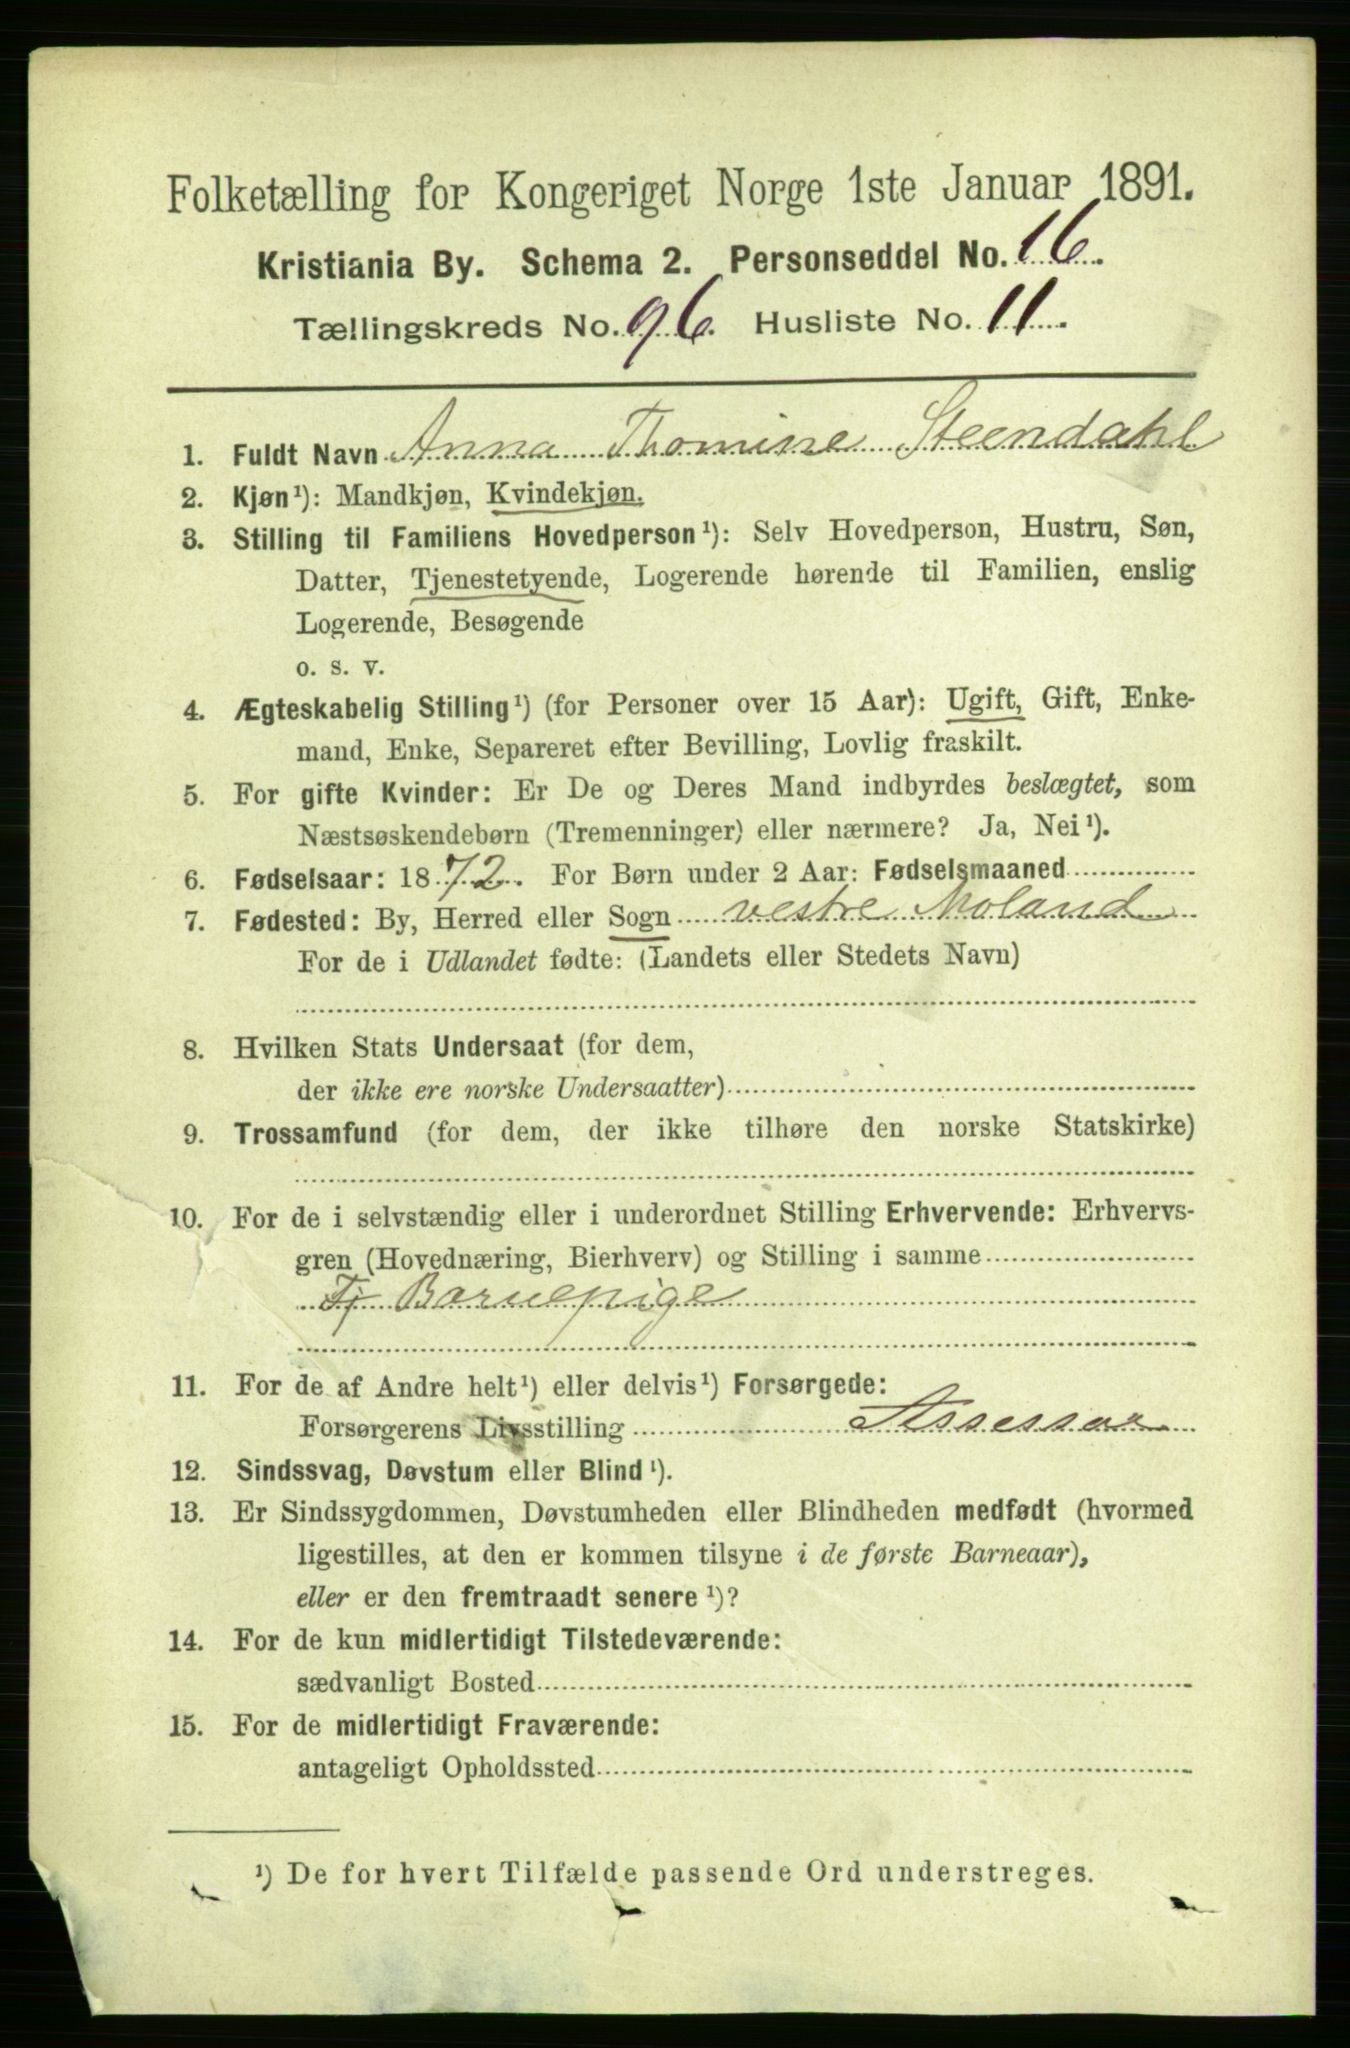 Folketælling for Kongeriget Norge 1ste Januar 1891.
Kristiania By. Schema 2. Personseddel No. 16.
Tællingskreds No. 96. Husliste No. 11.
1. Fuldt Navn Anna Thomine Steendahl
2. Kjøn¹): Mandkjøn, Kvindekjøn.
3. Stilling til Familiens Hovedperson¹): Selv Hovedperson, Hustru, Søn,
Datter, Tjenestetyende, Logerende hørende til Familien, enslig
Logerende, Besøgende
o. s. v.
4. Ægteskabelig Stilling¹) (for Personer over 15 Aar): Ugift, Gift, Enke-
mand, Enke, Separeret efter Bevilling, Lovlig fraskilt.
5. For gifte Kvinder: Er De og Deres Mand indbyrdes beslægtet, som
Næstsøskendebørn (Tremenninger) eller nærmere? Ja, Nei¹).
6. Fødselsaar: 1872. For Børn under 2 Aar: Fødselsmaaned
7. Fødested: By, Herred eller Sogn vestre Moland
For de i Udlandet fødte: (Landets eller Stedets Navn)
8. Hvilken Stats Undersaat (for dem,
der ikke ere norske Undersaatter)
9. Trossamfund (for dem, der ikke tilhøre den norske Statskirke)
10. For de i selvstændig eller i underordnet Stilling Erhvervende: Erhvervs-
gren (Hovednæring, Bierhverv) og Stilling i samme
Tj Barnepige
11. For de af Andre helt¹) eller delvis¹) Forsørgede:
Forsørgerens Livsstilling Assessor
12. Sindssvag, Døvstum eller Blind¹).
13. Er Sindssygdommen, Døvstumheden eller Blindheden medfødt (hvormed
ligestilles, at den er kommen tilsyne i de første Barneaar),
eller er den fremtraadt senere¹)?
14. For de kun midlertidigt Tilstedeværende:
sædvanligt Bosted
15. For de midlertidigt Fraværende:
antageligt Opholdssted
¹) De for hvert Tilfælde passende Ord understreges.